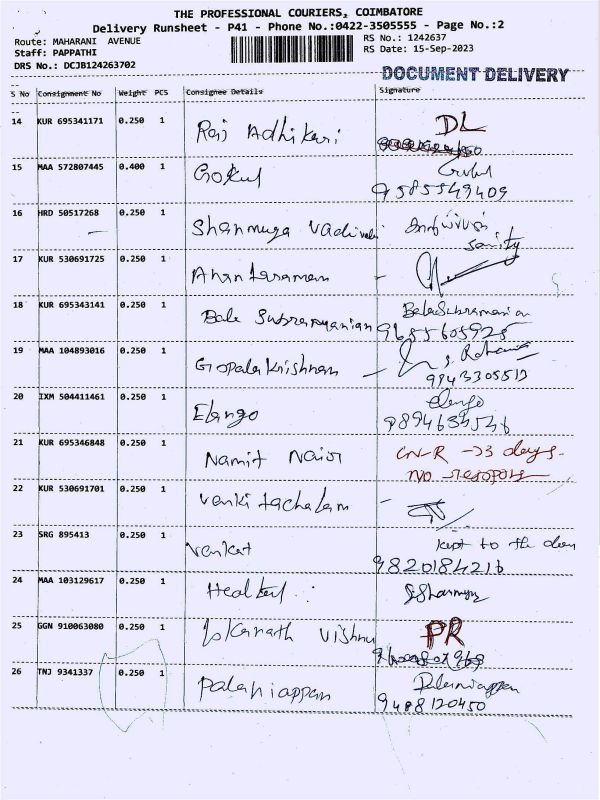 THE PROFESSIONAL COURIERS, COIMBATORE
Delivery Runsheet - P41 - Phone No.:0422-3505555 - Page No.:2
Route: MAHARANI AVENUE RS No.: 1242637
Staff: PAPPATHI RS Date: 15-Sep-2023
DRS No.: DCJB124263702
DOCUMENT DELIVERY
S No Consignment No Weight PCS Consignee Details Signature
14 KUR 695341171 0.250 1 Raj Adhikari DL
15 MAA 572807445 0.400 1 Gokul Gokul
9585549409
16 HRD 50517268 0.250 1 Shanmuga Vadivelu
17 KUR 530691725 0.250 1 Anantaraman -
18 KUR 695343141 0.250 1 Bala Subramanian BalaSubramanian
9655605925
19 MAA 104893016 0.250 1 Gopalakrishnan -
9943305513
20 IXM 504411461 0.250 1 Elango elango
9894634536
21 KUR 695346848 0.250 1 Namit Nair CN-R -3 days-
no respons
22 KUR 530691701 0.250 1 Venkitachalam -
23 SRG 895413 0.250 1 Venkat kept to the door
9820184216
24 MAA 103129617 0.250 1
25 GGN 910063080 0.250 1 Lokanath Vishnu PR
26 TNJ 9341337 0.250 1 Palaniappan Palaniappan
9488120450